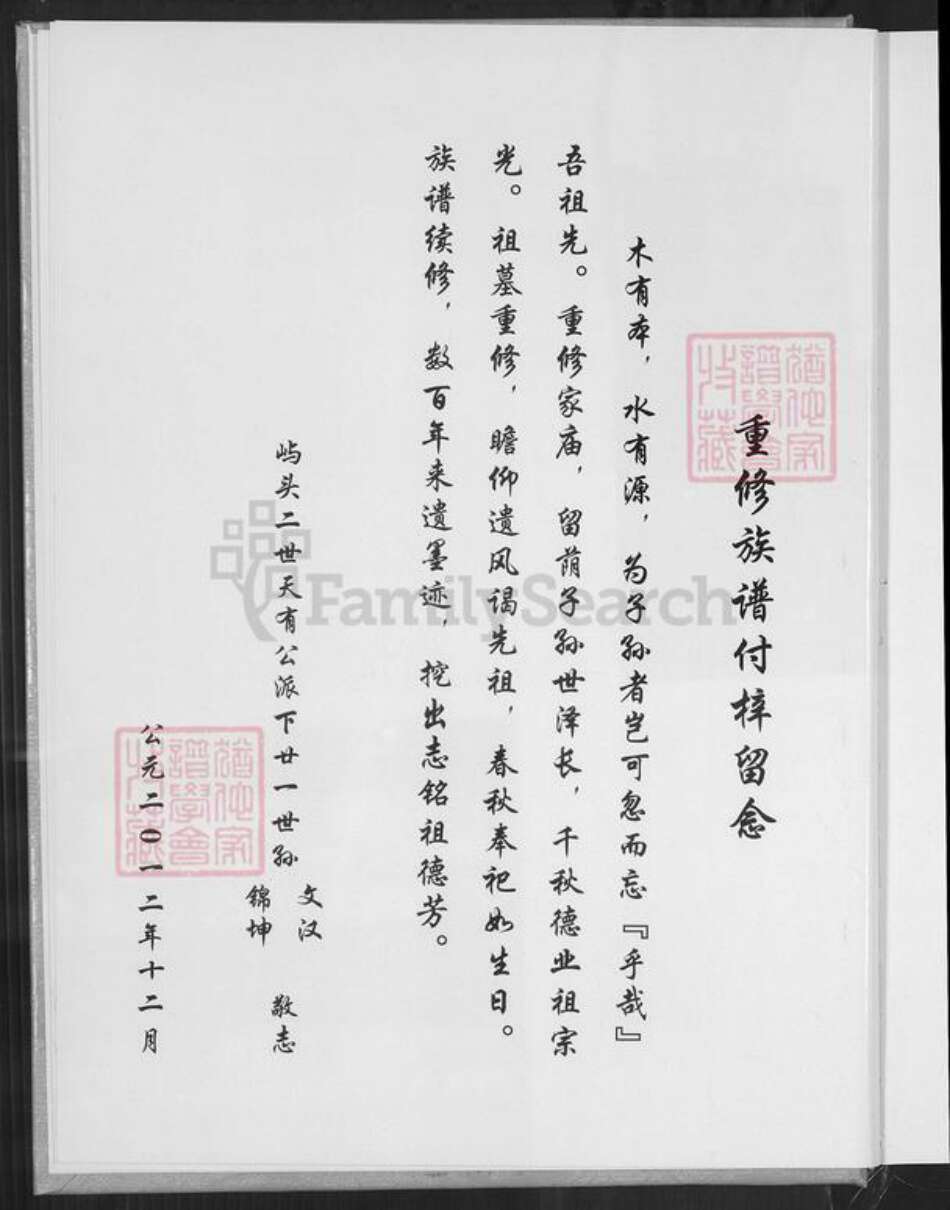 重修族谱付梓留念
木有本，水有源，为子孙者岂可忽而忘『乎哉』
吾祖先。重修家庙，留荫子孙世泽长，千秋德业祖宗
光。祖墓重修，瞻仰遗风谒先祖，春秋奉祀如生日。
族谱续修，数百年来遗墨迹，挖出志铭祖德芳。
屿头二世天有公派下廿一世孙
文汉
锦坤
敬志
公元二〇一二年十二月
猶他家
譜學會
收藏
猶他家
譜學會
收藏
FamilySearch